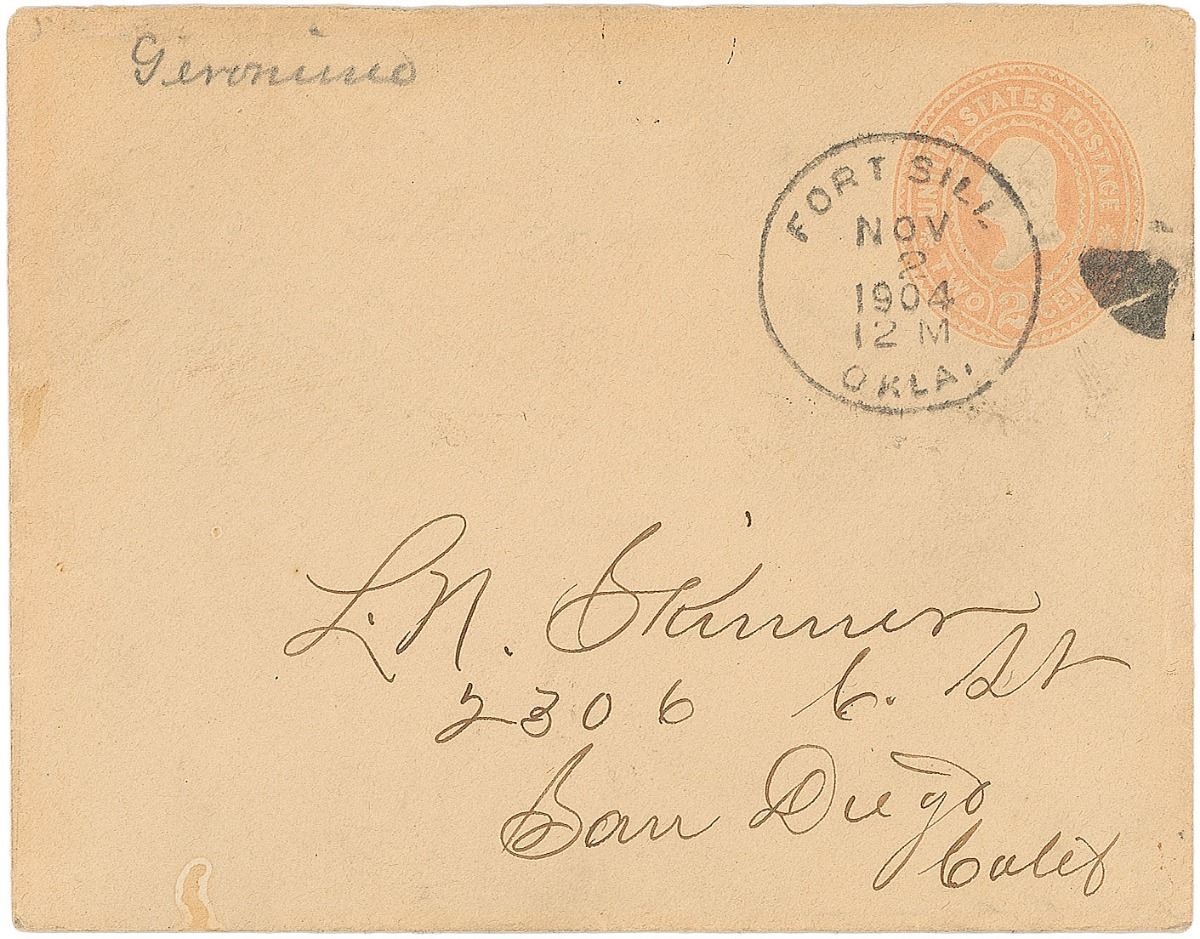 Geronimo
UNITED STATES POSTAGE
TWO 2 CEN
FORT SILL
NOV
2
1904
12 M
OKLA.
L. N. Skinner
2306 C. St
San Diego
Calif